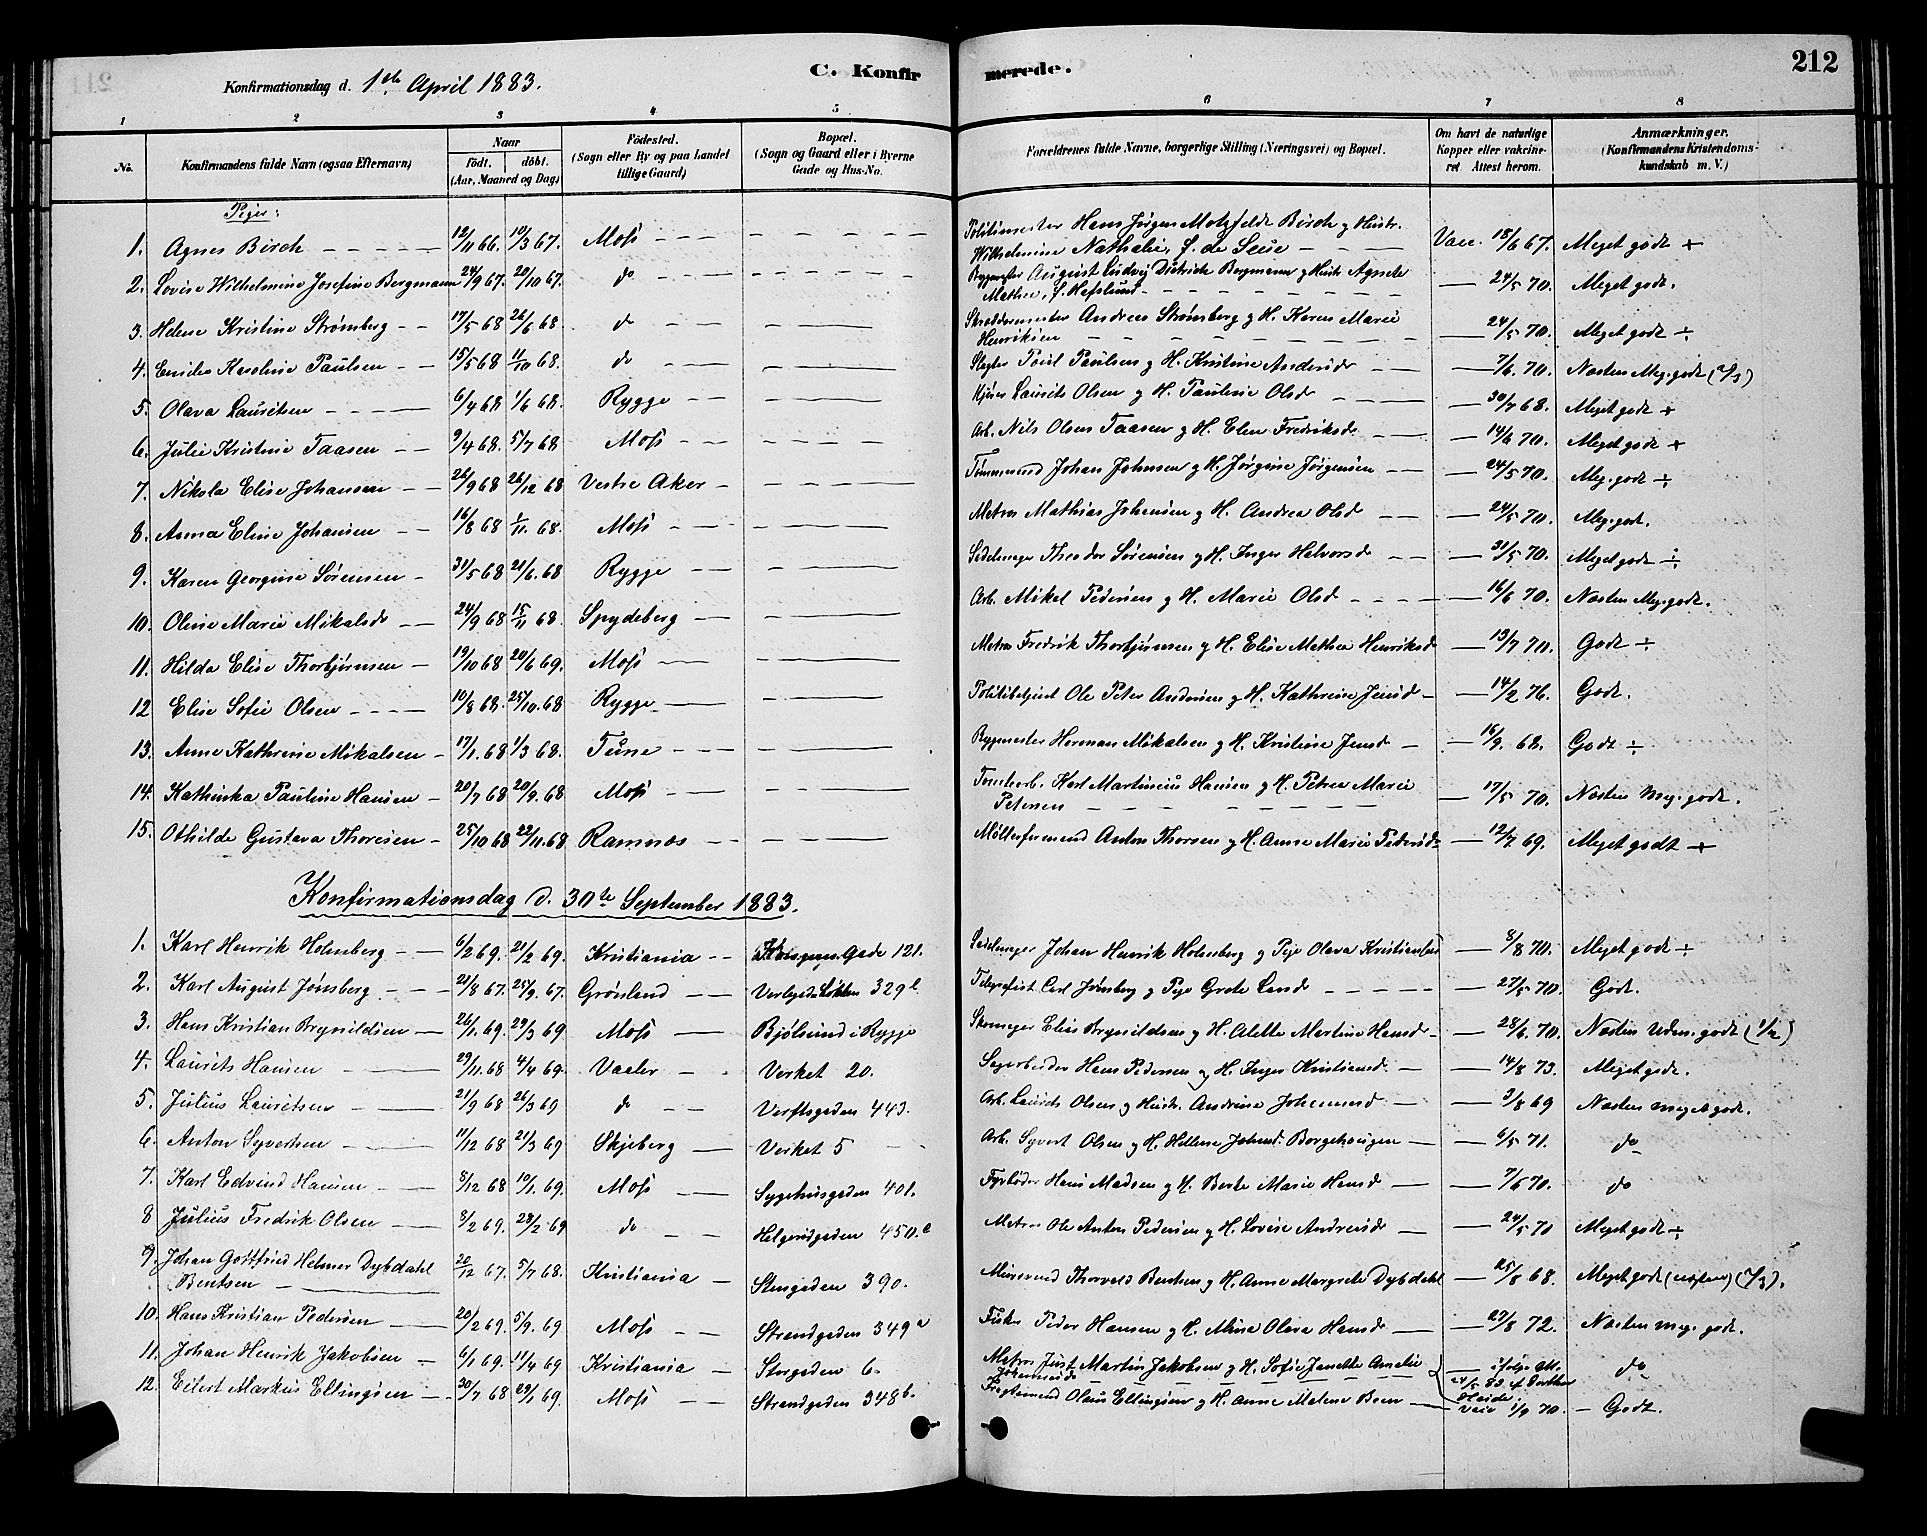 212
Konfirmationsdag d. 1ste April 1883.
C. Konfirmerede.
1 2 3 4 5 6 7 8
No.
Konfirmandens fulde Navn (ogsaa Efternavn)
Naar
født. døbt.
(Aar, Maaned og Dag)
Fødested.
(Sogn eller By og paa Landet
tillige Gaard)
Bopæl.
(Sogn og Gaard eller i Byerne
Gade og Hus-No.
Forældrenes fulde Navne, borgerlige Stilling (Næringsvei) og Bopæl.
Om havt de naturlige
Kopper eller vakcine-
ret Attest herom.
Anmærkninger.
(Konfirmandens Kristendoms-
kundskab m. V.)
Piger:
1. Agnes Birch 12/11 66. 10/3 67. Moss Politimester Hans Jørgen Motzfeldt Birch og Hustr.
Wilhelmine Nathalie, f. de Seue Vacc. 18/6 67. Meget godt +
2. Lovise Wilhelmine Josefine Bergmann 24/9 67. 20/10 67. do Bygmester August Ludvig Dietrich Bergmann og Hustr. Agnete
Mathea, f. Hafslund 24/5 70. Meget godt.
3. Helene Kristine Strømberg 17/5 68 26/6 68. do Andreas Strømberg og H. Karen Marie
Henriksen 24/5 70. Meget godt ÷
4. Emilie Karoline Paulsen 15/5 68 11/10 68. do Slagter Poul Paulsen og H. Kristine Andersd. 7/6. 70. Næsten Meg. godt (2/3)
5. Olava Lauritsen 6/4 68. 1/6 68. Rygge Laurits Olsen og H. Pauline Olsd. 30/7 68. Meget godt +
6. Julie Kristine Taasen 9/4 68. 5/7 68 Moss Arb. Nils Olsen Taasen og H. Elen Fredriksd. 14/6 70. Meget godt +
7. Nikola Elise Johansen 26/9 68 26/12 68 Vestre Aker Tømmermand Johan Johnsen og H. Jørgine Jørgensen 24/5 70. Meg. godt ÷
8. Anna Eline Johansen 16/8 68 1/11. 68. Moss Matros Mathias Johansen og H. Andrea Olsd. 24/5 70. Meg. godt.
9. Karen Georgine Sørensen 31/5 68 21/6. 68 Rygge Sadelmager Theodor Sørensen og H. Inger Halvorsd. 31/5 70. Meget godt ÷
10. Oline Marie Mikalsd. 24/9 68 15/11 68. Spydeberg Arb. Mikal Pedersen og H. Marie Olsd. 16/6 70. Næsten Meg. godt.
11. Hilda Elise Thorbjørnsen 19/10 68 20/6 69. Moss Matros Fredrik Thorbjørnsen og H. Elise Mathea Henriksd. 13/7 70. Godt ÷
12 Elise Sofie Olsen 10/8 68. 25/10. 68 Rygge Politibetjent Ole Peter Andersen og H. Kathrine Jensd. 14/2 76. Godt.
13. Anne Kathrine Mikalsen 17/1. 68 1/3 68. Tune Bygmester Herman Mikalsen og H. Kristine Jensd. 16/9. 68. Godt ÷
14. Kathinka Pauline Hansen 20/7 68 20/9. 68 Moss Karl Martinius Hansen og H. Petra Marie
Petersen 17/5 70. Næsten Meg. godt.
15. Othilde Gustava Thoresen 25/10 68 22/11. 68 Ramnæs Møllerformand Anton Thorsen og H. Anne Marie Pedersd. 12/7 69. Meget godt +
Konfirmationsdag d. 30te September 1883.
1. Karl Henrik Holmberg 6/2 69. 21/2 69. Kristiania Kongens Gade 121. Sadelmager Johan Henrik Holmberg og Pige Olava Kristiansen 8/8 70. Meget godt ÷
2. Karl August Jønsberg 21/8 67. 25/9. 67. Grønland Løkken 329 Telegrafist Carl Jønsberg og Pige Grete Land 27/5 70. Godt.
3. Hans Kristian Brynildsen 26/1. 69. 29/3 69 Moss Bjølsund i Rygge Skomager Elias Brynildsen og H. Alette Martine Hansd. 28/6. 70. Næsten Udm. godt (1/2)
4. Laurits Hansen 29/11. 68 4/4 69. Vaaler Verket 20. Sagarbeider Hans Pedersen og H. Inger Kristiansd. 14/8 73. Meget godt.
5. Julius Lauritsen 21/9 68 26/3 69 do Værftsgaden 443. Arb. Laurits Olsen og Hustr. Andrine Johannesd. 3/8 69 Næsten meget godt.
6. Anton Syvertsen 11/12 68 21/3 69 Skjeberg Verket 5 Arb. Syvert Olsen og H. Hellene Johnsd. Borgehaugen 6/5 71. do
7. Karl Edvind Hansen 8/12 68 10/1. 69. Moss Sygehusgaden 401. Fyrbøder Hans Madsen og H. Berte Marie Hansd. 7/6 70. do
8 Julius Fredrik Olsen 8/2 69. 28/2 69 do Helgerødgaden 450. Matros Ole Anton Pedersen og H. Lovise Andreasd. 24/5 70 Meget godt ÷
9. Johan Gottfried Helmer Dybdahl
Bentsen 20/12 67. 5/7 68. Kristiania Stengaden 390. Murersvend Thorvald Bentsen og H. Anne Margrete Dybdahl 25/8 68. Meget godt (næsten) (2/3).
10. Hans Kristian Pedersen 20/2 69. 5/9. 69 Moss Strandgaden 349 a Fisker Peder Hansen og H. Mina Olava Hansd. 27/8 72. Næsten meg. godt.
11. Johan Henrik Jakobsen 6/1 69. 11/4 69 Kristiania Storgaden 6. Matros Just Martin Jakobsen og H. Sofie Janette Amalie ifølge Att. do
12. Eilert Markus Ellingsen 30/7 68 29/1 69. Moss Strandgaden 348 b. Olaus Ellingsen og H. Anne Malene Been 1/9 70. Godt.